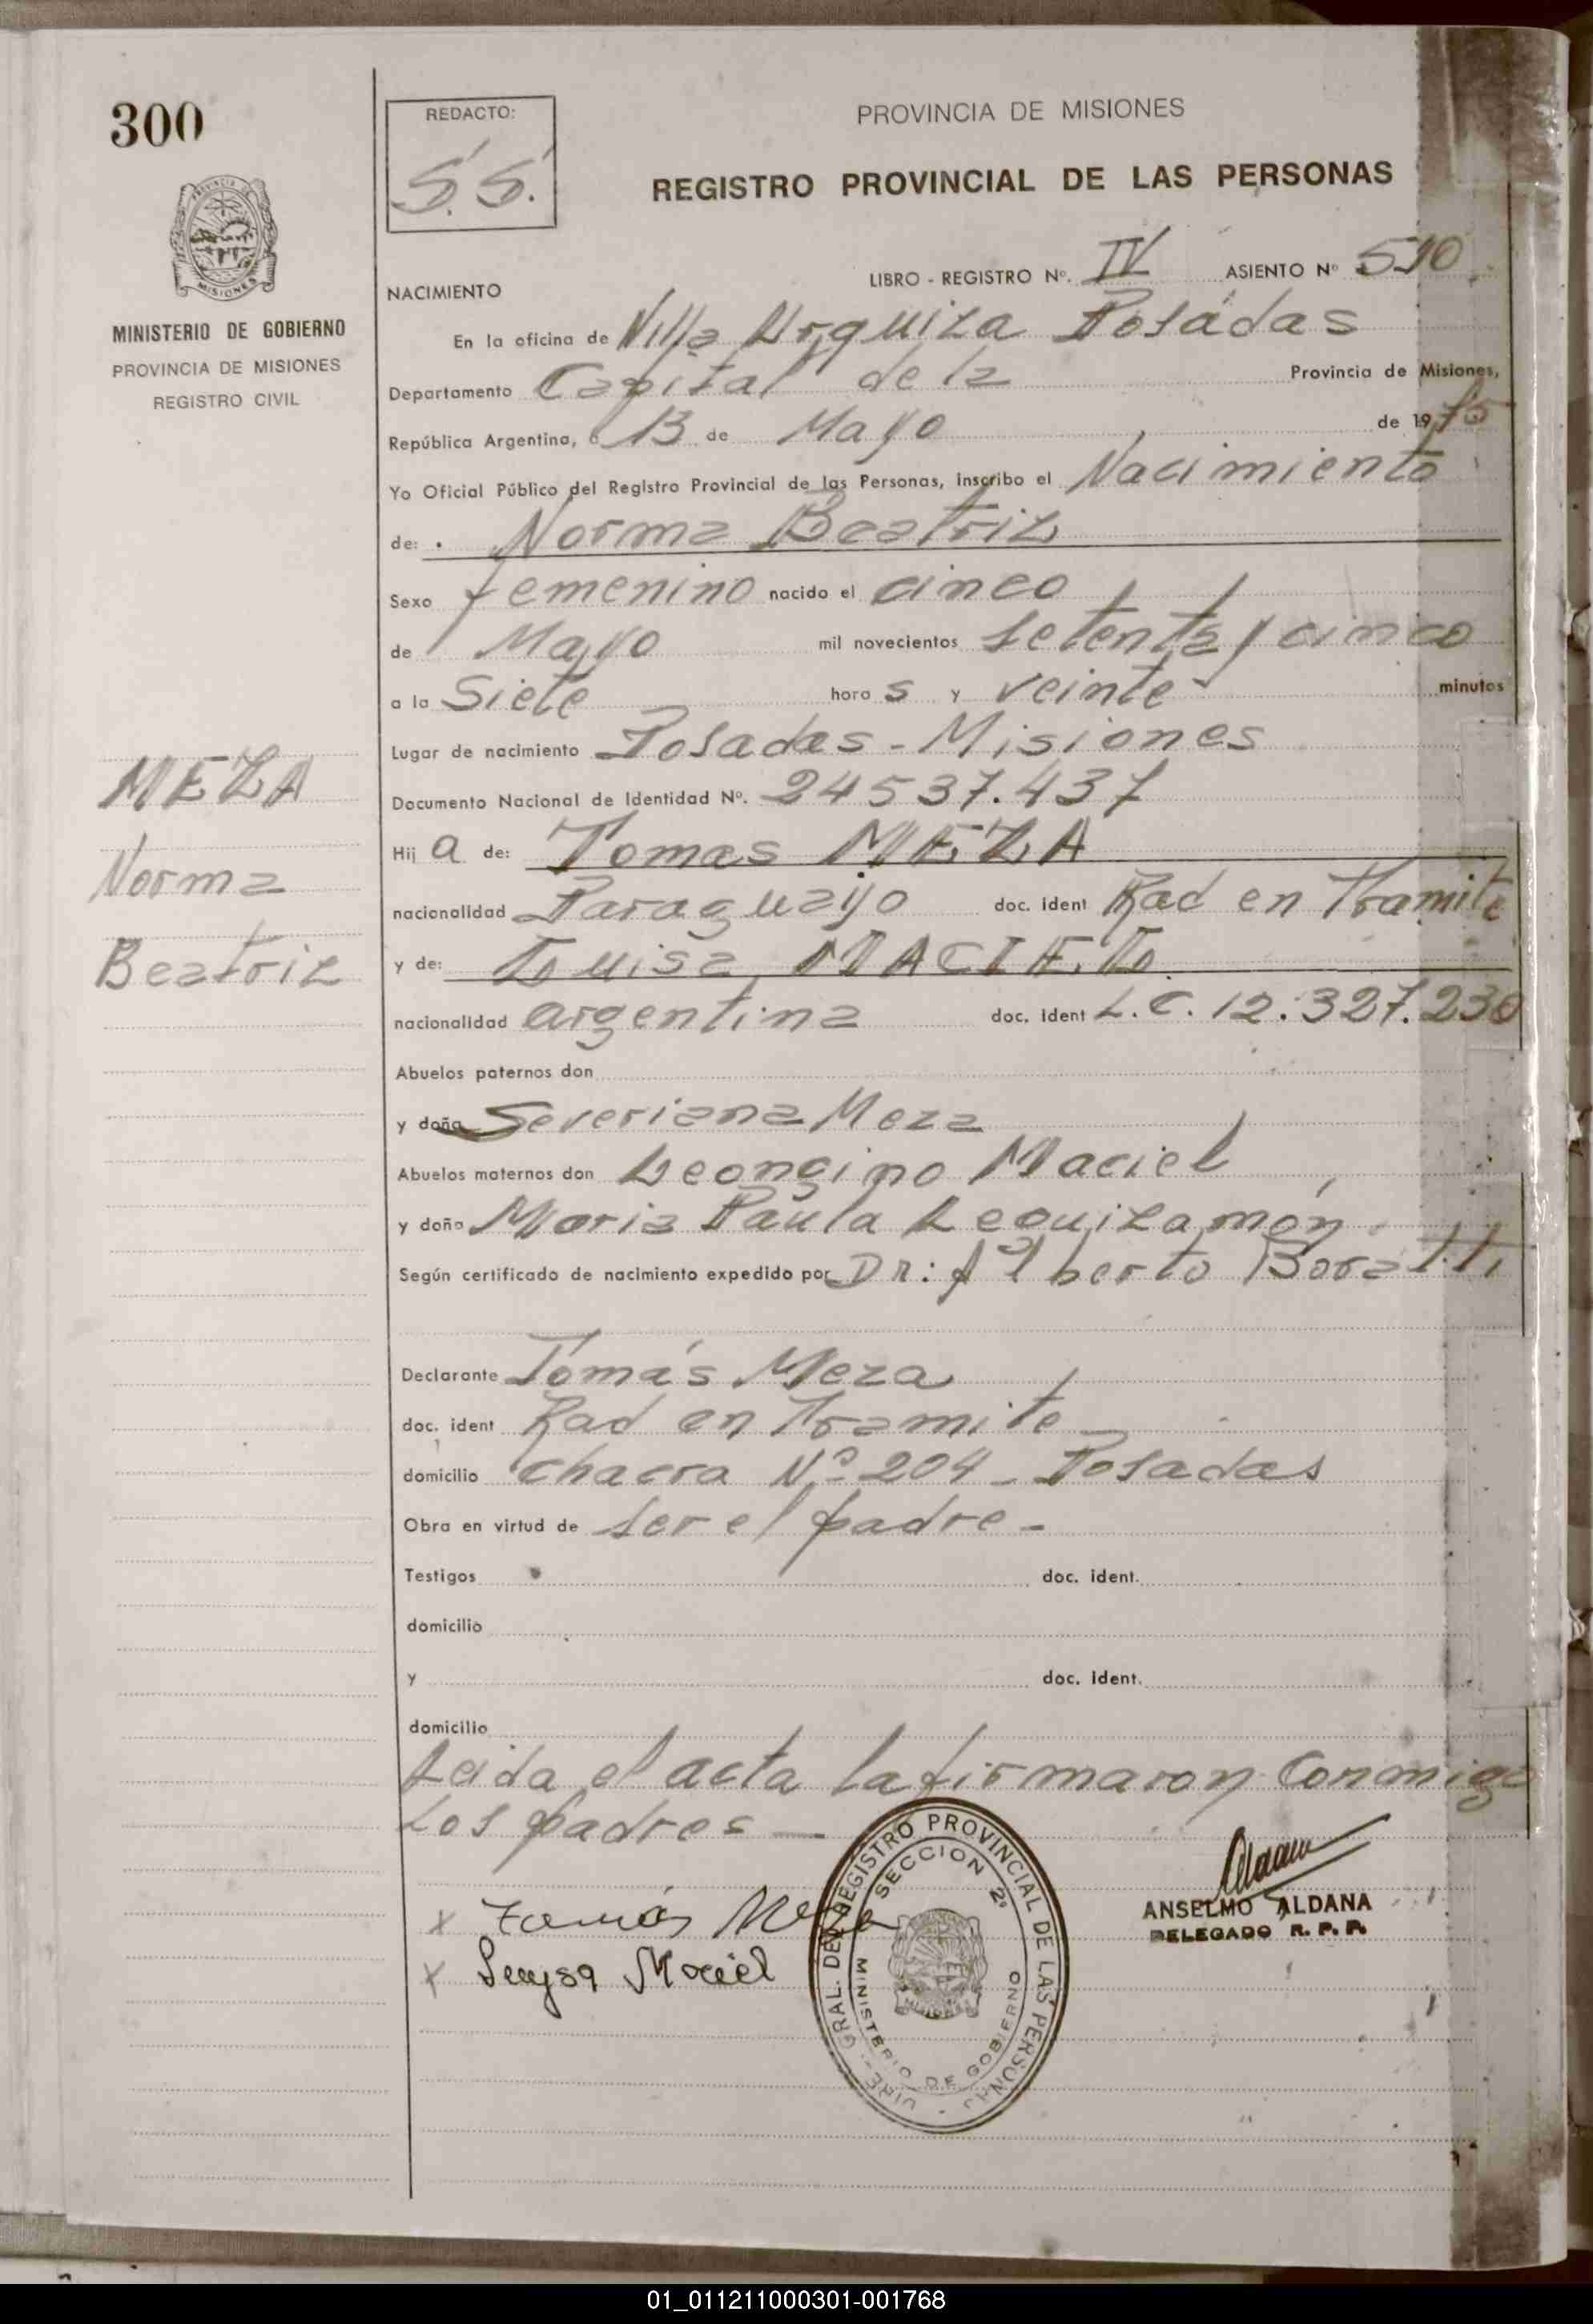 300
REDACTO:
S. S.
PROVINCIA DE MISIONES
REGISTRO PROVINCIAL DE LAS PERSONAS
MISIONES
MINISTERIO DE GOBIERNO
PROVINCIA DE MISIONES
REGISTRO CIVIL
LIBRO - REGISTRO Nº. IV ASIENTO Nº 510
NACIMIENTO
En la oficina de Villa Urquiza Posadas
Departamento Capital de la Provincia de Misiones,
República Argentina, a 13 de Mayo de 1975
Yo Oficial Público del Registro Provincial de las Personas, inscribo el Nacimiento
de: Norma Beatriz
Sexo femenino nacido el cinco
de Mayo mil novecientos setenta y cinco
a la Siete hora s y veinte minutos
Lugar de nacimiento Posadas - Misiones
Documento Nacional de Identidad Nº. 24537.437
Hij a de: Tomas MEZA
nacionalidad Paraguayo doc. ident Rad en Tramite
y de: Luisa MACIEL
nacionalidad argentina doc. ident L.C. 12.327.230
Abuelos paternos don
y doña Severiana Meza
Abuelos maternos don Leongino Maciel
y doña Maria Paula Leguizamón
Según certificado de nacimiento expedido por DR: Alberto
Declarante Tomás Meza
doc. ident Rad en Tramite
domicilio chacra Nº 204 - Posadas
Obra en virtud de ser el padre -
Testigos doc. ident.
domicilio
y doc. ident.
domicilio
Leida el acta la firmaron conmigo
Los padres —
MEZA
Norma
Beatriz
x Tomás Meza
x Luysa Maciel
DIRE. GRAL. DEL REGISTRO PROVINCIAL DE LAS PERSONAS
SECCION 2º
MINISTERIO DE GOBIERNO
ANSELMO ALDANA
DELEGADO R. P. P.
01_011211000301-001768